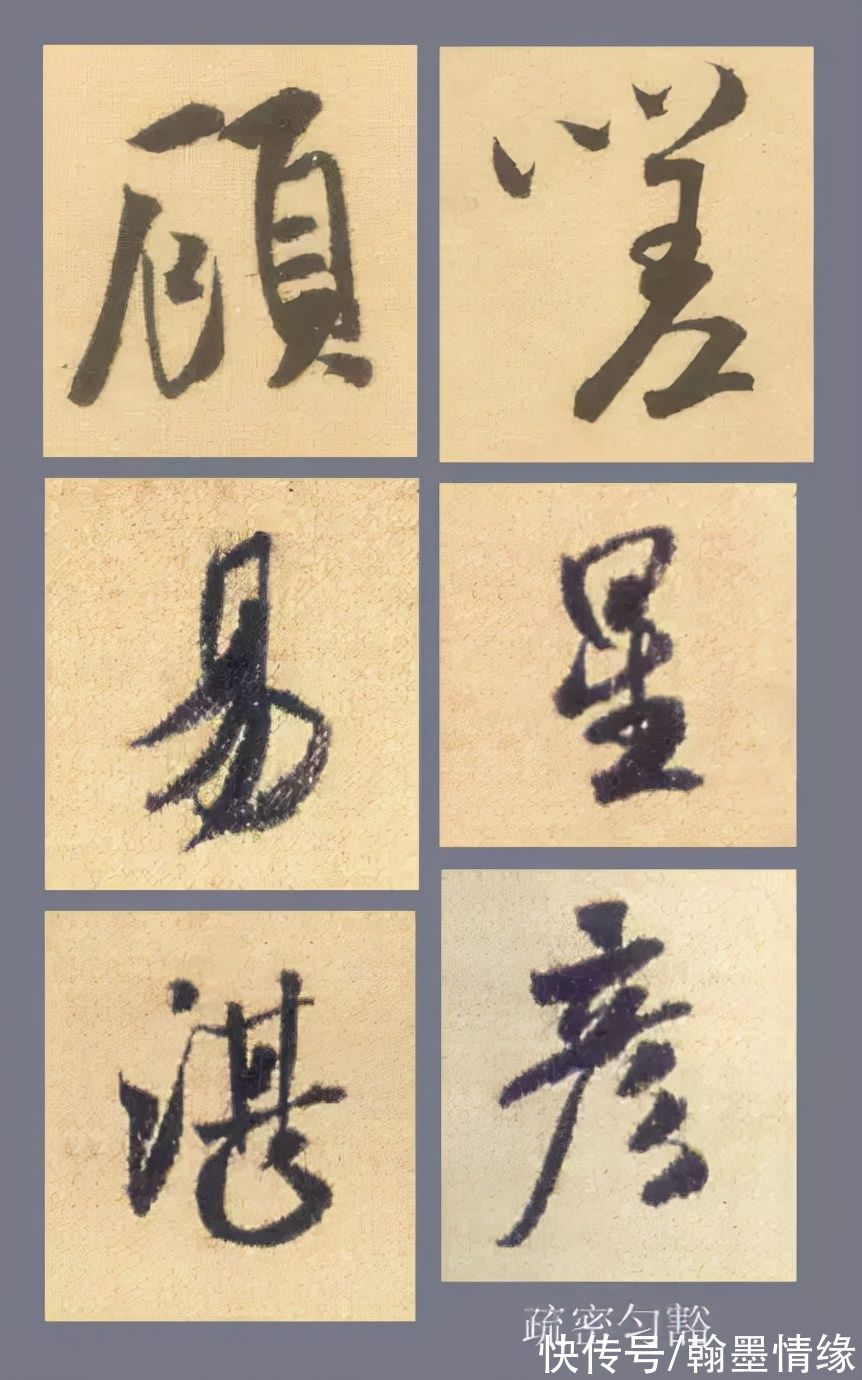 顾 嗟
易 星
湛 彦
疏密匀豁
快传号/翰墨情缘